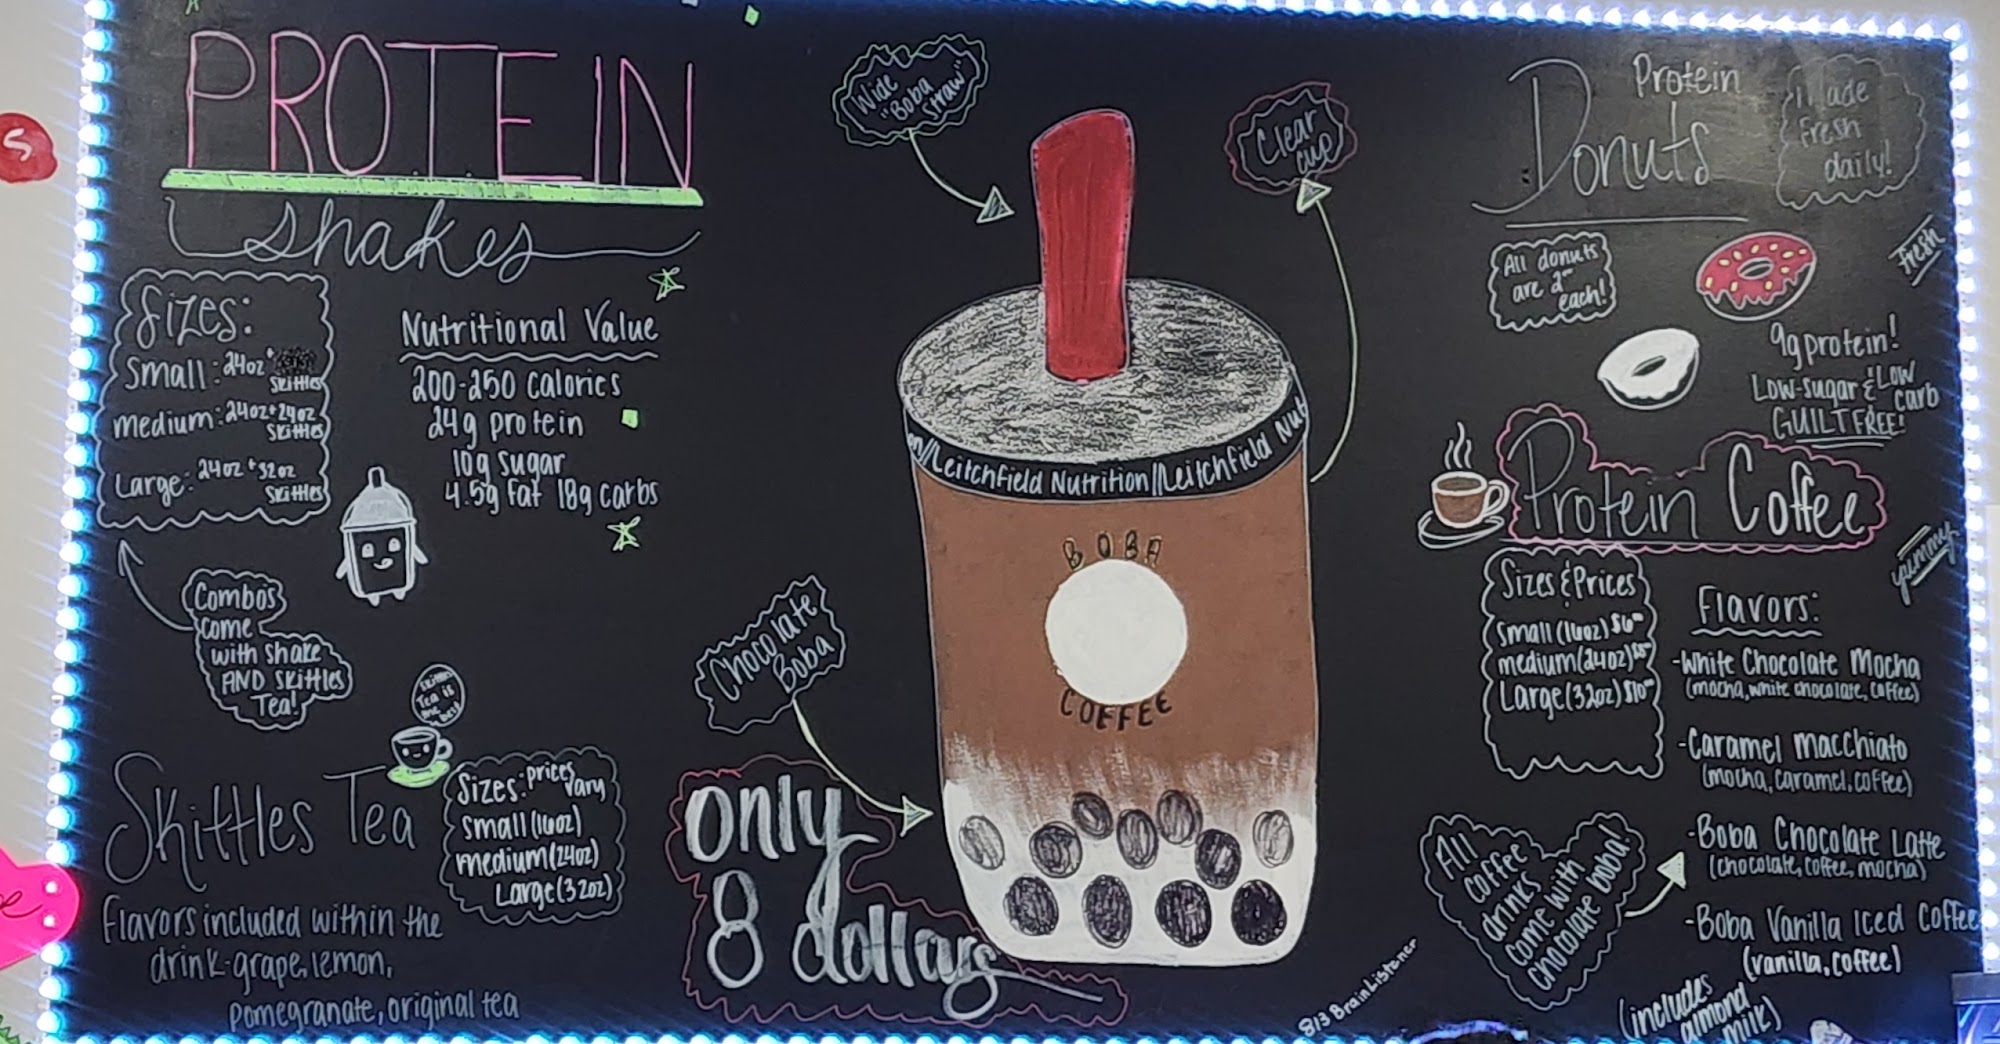 PROTEIN
shakes
Sizes:
Small: 24oz +
Skittles
medium: 24oz + 24oz
Skittles
Large: 24oz + 32oz
Skittles
Nutritional Value
200-250 calories
24g protein
10g sugar
4.5g fat 18g carbs
Combo's
come
with shake
AND Skittles
Tea!
Skittles Tea
Skittles
Tea is
the
best
Sizes: prices
vary
Small (16oz)
medium (24oz)
Large (32oz)
Flavors included within the
drink-grape, lemon,
pomegranate, original tea
Wide
"Boba
straw"
Clear
cup
on//Leitchfield Nutrition//Leitchfield Nut
BOBA
COFFEE
Chocolate
Boba
only
8 dollars
813BrainListener
Protein
Donuts
Made
Fresh
daily!
All donuts
are 2
each!
Fresh
9g protein!
Low-sugar & Low
carb
GUILT FREE!
Protein Coffee
yummy
Sizes & Prices
Small (16oz) $6
medium (24oz) $8
Large (32oz) $10
Flavors:
-White Chocolate Mocha
(mocha, white chocolate, coffee)
-Caramel Macchiato
(mocha, caramel, coffee)
-Boba Chocolate Latte
(chocolate, coffee, mocha)
-Boba Vanilla Iced Coffee
(vanilla, coffee)
(includes
almond
milk)
All
coffee
drinks
come with
chocolate boba!
S